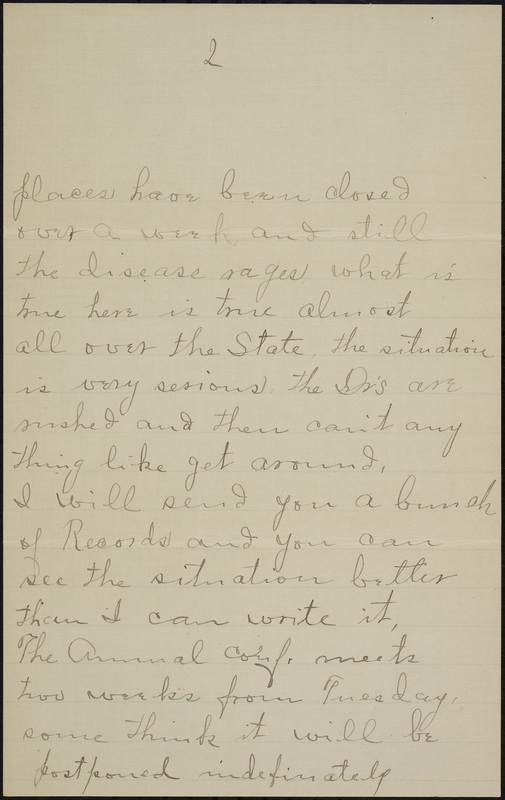 2
places have been closed
over a week and still
the disease rages what is
true here is true almost
all over the State, the situation
is very serious. the Dr's are
rushed and then can't any
thing like get around,
I will send you a bunch
of Records and you can
see the situation better
than I can write it,
The Annual conf. meets
two weeks from Tuesday.
some think it will be
postponed indefinately